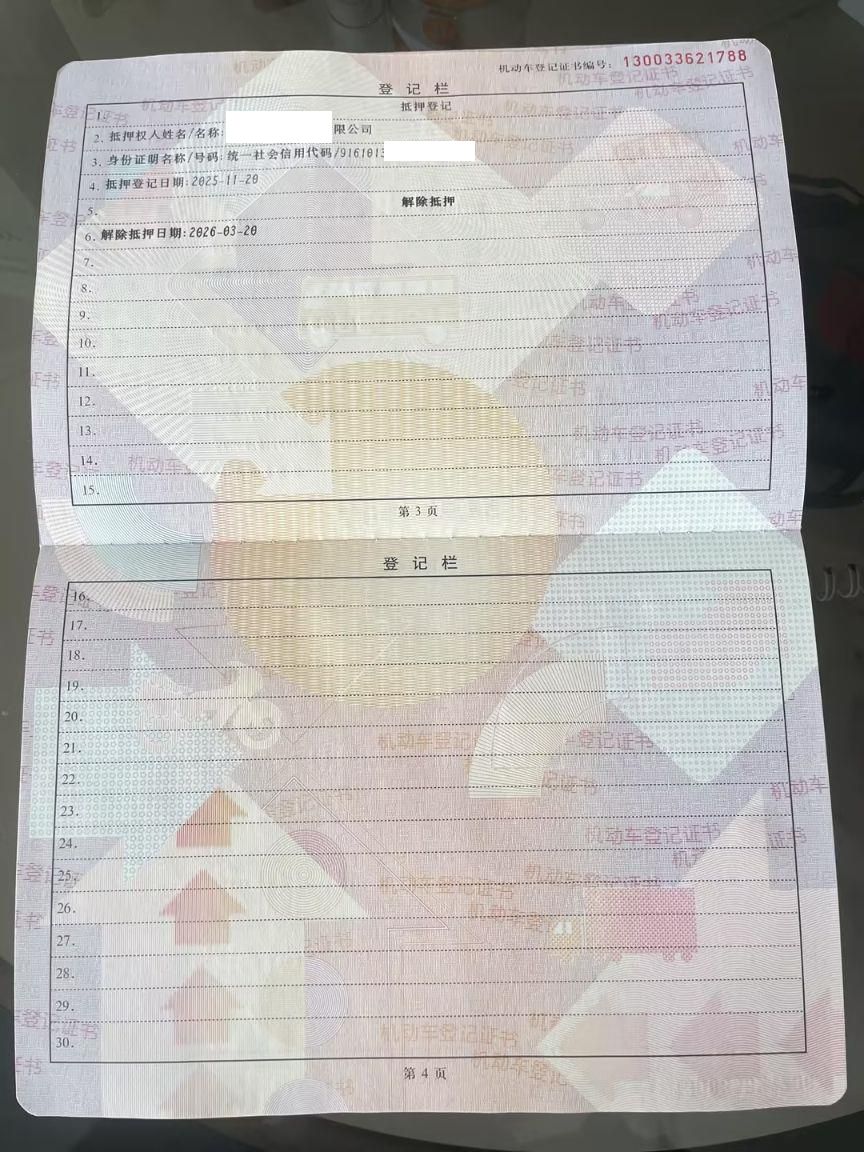 机动车登记证书编号：130033621788
登 记 栏
1. 抵押登记
2. 抵押权人姓名/名称: 限公司
3. 身份证明名称/号码: 统一社会信用代码/9161013
4. 抵押登记日期: 2025-11-20
5. 解除抵押
6. 解除抵押日期: 2026-03-20
7.
8.
9.
10.
11.
12.
13.
14.
15.
第 3 页
登 记 栏
16.
17.
18.
19.
20.
21.
22.
23.
24.
25.
26.
27.
28.
29.
30.
第 4 页